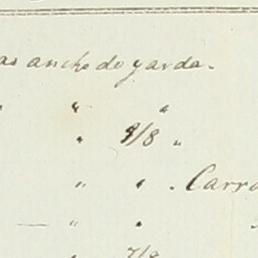 as ancho de yarda.
" " "
" 9/8 "
" " . Carra
— " "
" 7/8